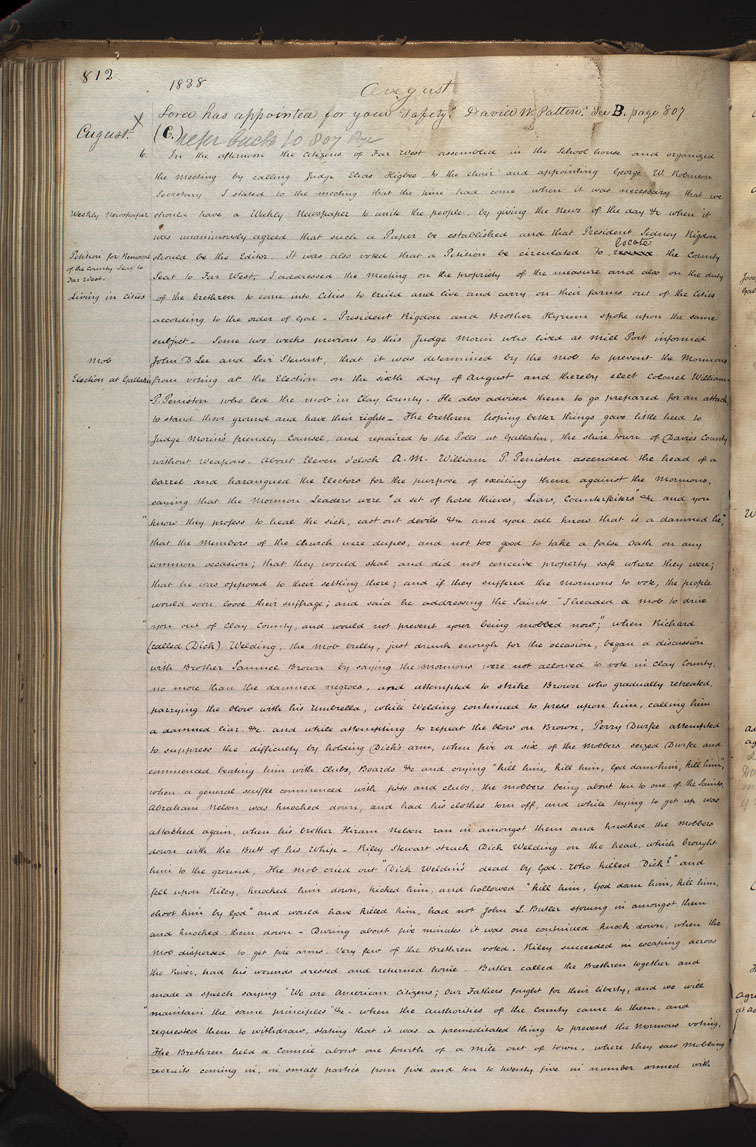 812
1838
August
Lord has appointed for your safety." David W. Patten." See B. page 807
August. X
(C. refer back to 807 &c
6. In the afternoon the citizens of Far West assembled in the School house and organized
the meeting by calling Judge Elias Higbee to the chair and appointing George W. Robinson
Secretary. I stated to the meeting that the time had come when it was necessary that we
Weekly Newspaper should have a Weekly Newspaper to unite the people. by giving the News of the day &c when it
was unanimously agreed that such a Paper be established and that President Sidney Rigdon
Petition for Removal should be the Editor. It was also voted that a Petition be circulated to locate the County
of the County Seat to
Far West. Seat to Far West, I addressed the meeting on the propriety of the measure and also on the duty
Living in Cities of the brethren to come into Cities to build and live and carry on their farms out of the Cities
according to the order of God – President Rigdon and Brother Hyrum spoke upon the same
subject – Some two weeks previous to this Judge Morin who lives at Mill Port informed
Mob John D Lee and Levi Stewart, that it was determined by the mob to prevent the Mormons
Election at Gallatin from voting at the Election on the sixth day of August and thereby elect Colonel William
P. Peniston who led the mob in Clay County. He also advised them to go prepared for an attack
to stand their ground and have their rights – The brethren hoping better things gave little heed to
Judge Morin's friendly Counsel, and repaired to the Polls at Gallatin, the shire town of Davies County
without weapons. About Eleven o'clock A.M. William P. Peniston ascended the head of a
barrel and harangued the Electors for the purpose of exciting them against the Mormons,
saying that the Mormon Leaders were "a set of horse thieves, Liars, Counterfeiters" &c and you
"know they profess to heal the sick, cast out devils &c and you all know that is a damned lie,"
that the Members of the Church were dupes, and not too good to take a false Oath on any
common occasion; that they would steal and did not conceive property safe where they were;
that he was opposed to their settling there; and if they suffered the Mormons to vote, the people
would soon loose their suffrage; and said he addressing the Saints "I headed a mob to drive
"you out of Clay County, and would not prevent your being mobbed now;" when Richard
(called Dick) Welding, the mob bully, just drunk enough for the occasion, began a discussion
with Brother Samuel Brown by saying the Mormons were not allowed to vote in Clay County,
no more than the damned negroes, and attempted to strike Brown who gradually retreated,
parrying the blow with his Umbrella, while Welding continued to press upon him, calling him
a damned liar &c. and while attempting to repeat the blow on Brown, Perry Durfee attempted
to suppress the difficulty by holding Dick's arm, when five or six of the Mobbers seized Durfee and
commenced beating him with Clubs, Boards &c and crying "kill him, kill him, God damn him, kill him",
when a general scuffle commenced with fists and clubs, the mobbers being about ten to one of the Saints,
Abraham Nelson was knocked down, and had his clothes torn off, and while trying to get up was
attacked again, when his brother Hiram Nelson ran in amongst them and knocked the Mobbers
down with the Butt of his Whip – Riley Stewart struck Dick Welding on the head, which brought
him to the ground, The mob cried out "Dick Weldin's dead by God. Who killed Dick?" and
fell upon Riley, knocked him down, kicked him, and hollowed "kill him, God dam him, kill him,
shoot him by God" and would have killed him, had not John L. Butler sprung in amongst them
and knocked them down – During about five minutes it was one continued knock down, when the
Mob dispersed to get fire arms. Very few of the Brethren voted. Riley succeeded in escaping across
the River, had his wounds dressed and returned home. Butler called the Brethren together and
made a speech saying "We are American citizens; our Fathers fought for their liberty, and we will
"maintain the same principles" &c. when the Authorities of the County came to them, and
requested them to withdraw, stating that it was a premeditated thing to prevent the Mormons voting.
The Brethren held a Council about one fourth of a mile out of town, where they saw mobbing
recruits coming in, in small parties from five and ten to twenty five in number armed with